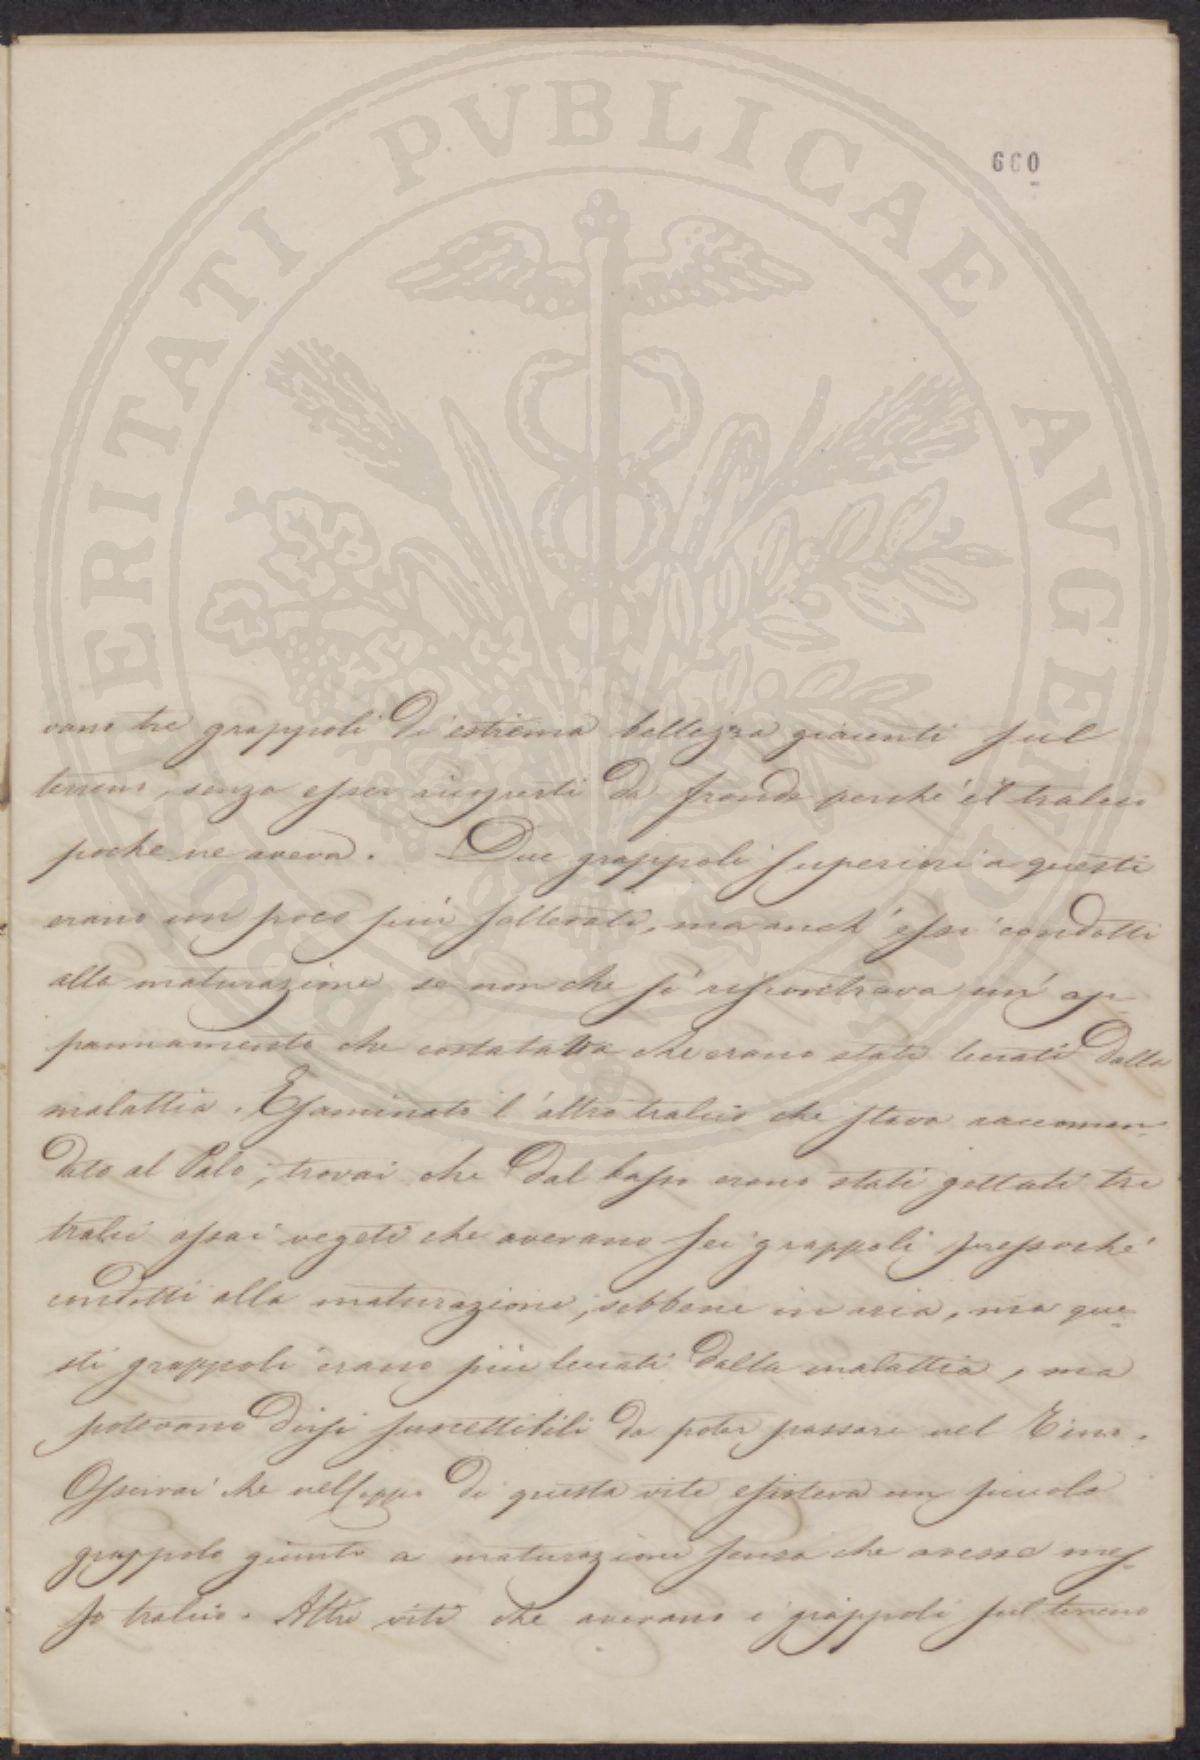 PROSPERITATI PVBLICAE AVGENDAE
660
vano tre grappoli di estrema bellezza giacenti sul
terreno, senza esser ricoperti da fronde perché il tralcio
poche ne aveva. Due grappoli superiori a questi
erano un poco più sollevati, ma anch'essi condotti
alla maturazione se non che si riscontrava un ap-
pannamento che costatava che erano stati leccati dalla
malattia. Esaminato l'altro tralcio che stava raccoman-
dato al Palo, trovai che dal basso erano stati gettati tre
tralci assai vegeti che avevano sei grappoli pressoché
condotti alla maturazione, sebbene in aria, ma que-
sti grappoli erano più leccati dalla malattia, ma
potevano dirsi suscettibili da poter passare nel Tino.
Osservai che nel ceppo di questa vite esisteva un piccolo
grappolo giunto a maturazione senza che avesse mes-
so tralcio. Altre viti che avevano i grappoli sul terreno